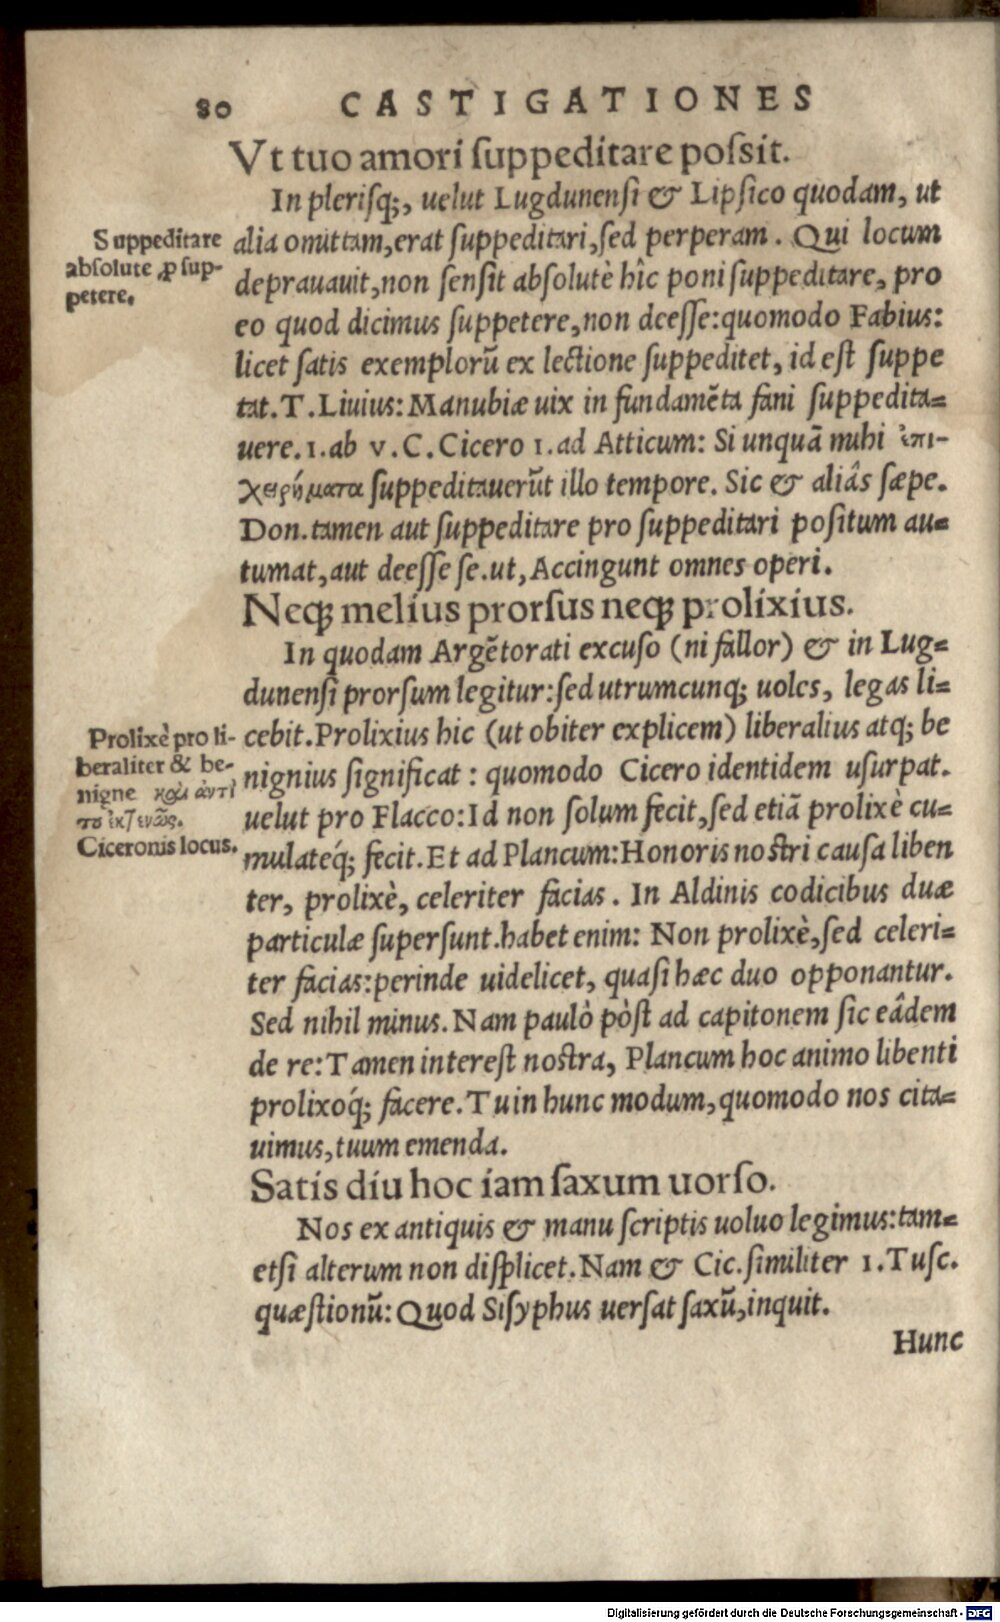 80 CASTIGATIONES
Vt tuo amori suppeditare possit.
In plerisq;, uelut Lugdunensi & Lipsico quodam, ut
Suppeditare
absolute ꝓ sup-
petere.
alia omittam, erat suppeditari, sed perperam. Qui locum
deprauauit, non sensit absolutè hîc poni suppeditare, pro
eo quod dicimus suppetere, non deesse: quomodo Fabius:
licet satis exemplorũ ex lectione suppeditet, id est suppe
tat. T. Liuius: Manubiæ uix in fundamẽta fani suppedita=
uere. 1. ab v. C. Cicero 1. ad Atticum: Si unquã mihi ἐπι-
χειρήματα suppeditauerũt illo tempore. Sic & aliâs sæpe.
Don. tamen aut suppeditare pro suppeditari positum au=
tumat, aut deesse se. ut, Accingunt omnes operi.
Neq; melius prorsus neq; prolixius.
In quodam Argẽtorati excuso (ni fallor) & in Lug=
dunensi prorsum legitur: sed utrumcunq; uoles, legas li=
Prolixè pro li-
beraliter & be-
nigne καὶ ἀντὶ
το ἐκτενῶς.
Ciceronis locus.
cebit. Prolixius hic (ut obiter explicem) liberalius atq; be
nignius significat : quomodo Cicero identidem usurpat.
uelut pro Flacco: Id non solum fecit, sed etiã prolixè cu=
mulateq́; fecit. Et ad Plancum: Honoris nostri causa liben
ter, prolixè, celeriter facias. In Aldinis codicibus duæ
particulæ supersunt. habet enim: Non prolixè, sed celeri=
ter facias: perinde uidelicet, quasi hæc duo opponantur.
Sed nihil minus. Nam paulò pòst ad capitonem sic eâdem
de re: Tamen interest nostra, Plancum hoc animo libenti
prolixoq́; facere. Tu in hunc modum, quomodo nos cita=
uimus, tuum emenda.
Satis diu hoc iam saxum uorso.
Nos ex antiquis & manu scriptis uoluo legimus: tam=
etsi alterum non displicet. Nam & Cic. similiter 1. Tusc.
quæstionũ: Quod Sisyphus uersat saxũ, inquit.
Hunc
Digitalisierung gefördert durch die Deutsche Forschungsgemeinschaft - DFG